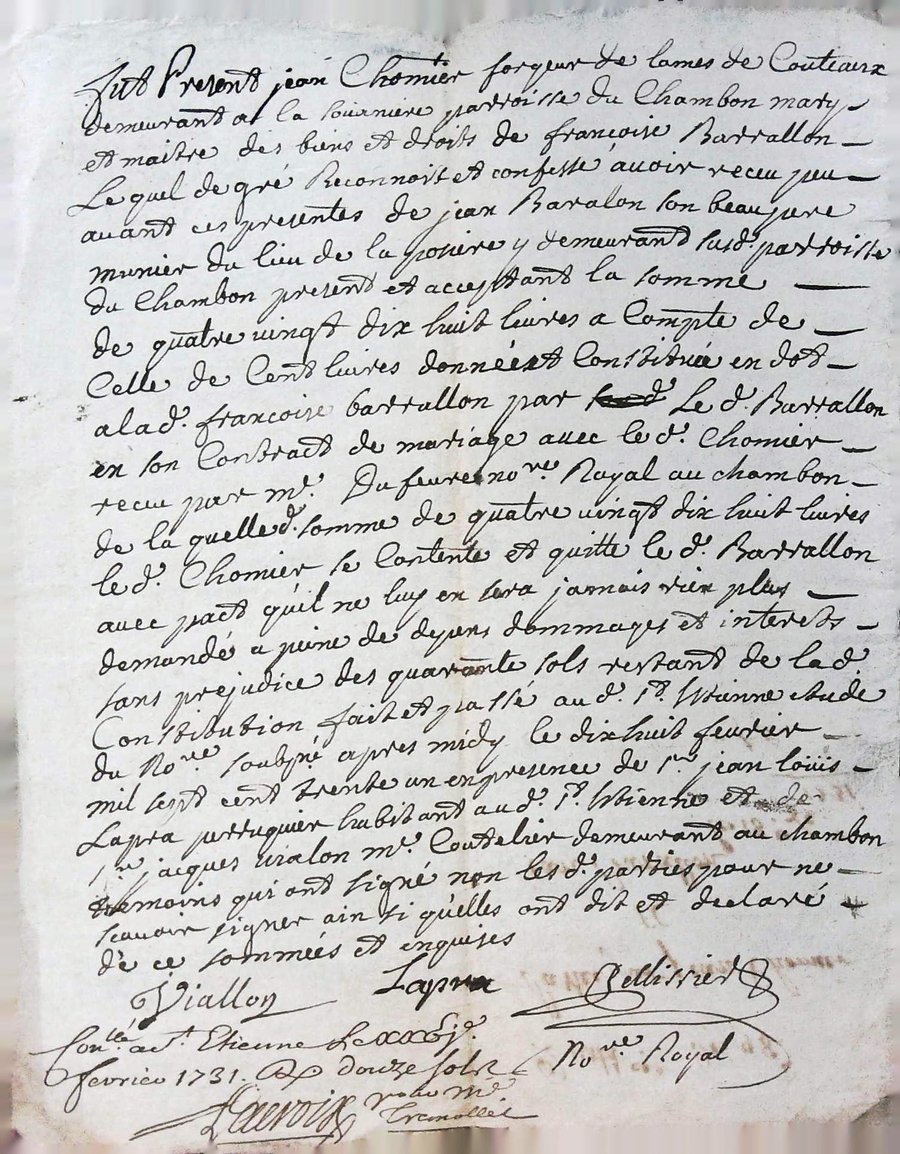 fut Present jean Chomier forgeur de lames de Couteaux
demeurant a la sourniere parroisse du Chambon mary
et maitre des biens et droits de françoise Barrallon
Le quel de gré Reconnoit et confesse avoir receu peu
avant ces presentes de jean Baralon son beaupere
munier du lieu de la posiere y demeurant susd. parroisse
du Chambon present et acceptant la somme
de quatre vingt dix huit livres a Compte de
Celle de Cent livres donnée et Constituée en dot
a la d. francoise barrallon par Le d. Barrallon
en son Contract de mariage avec le d. Chomier
receu par me. Dufeure nore. Royal au chambon
de la quelle d. somme de quatre vingt dix huit livres
le d. Chomier se Contente et quitte le d. Barrallon
avec pact qu'il ne luy en sera jamais rien plus
demandé a peine de depens dommages et interets
sans prejudice des quarante sols restant de la d.
Constitution fait et passé au d. st. Etienne etude
du Nore. soubné apres midy le dixhuit feurier
mil sept cent trente un en presence de sr. jean louis
Lapra perruquier habitant au d. st. Etienne et de
sr. jacques vialon me. Coutelier demeurant au chambon
temoins qui ont signé non les d. parties pour ne
scavoir signer ain si qu'elles ont dit et declaré
de ce sommées et enquises
Viallon Lapra Pellissier
Nore. Royal
Conllé a st. Etienne Le
fevrier 1731. R douze sols
Lacroix pour Mr.
Tremollet